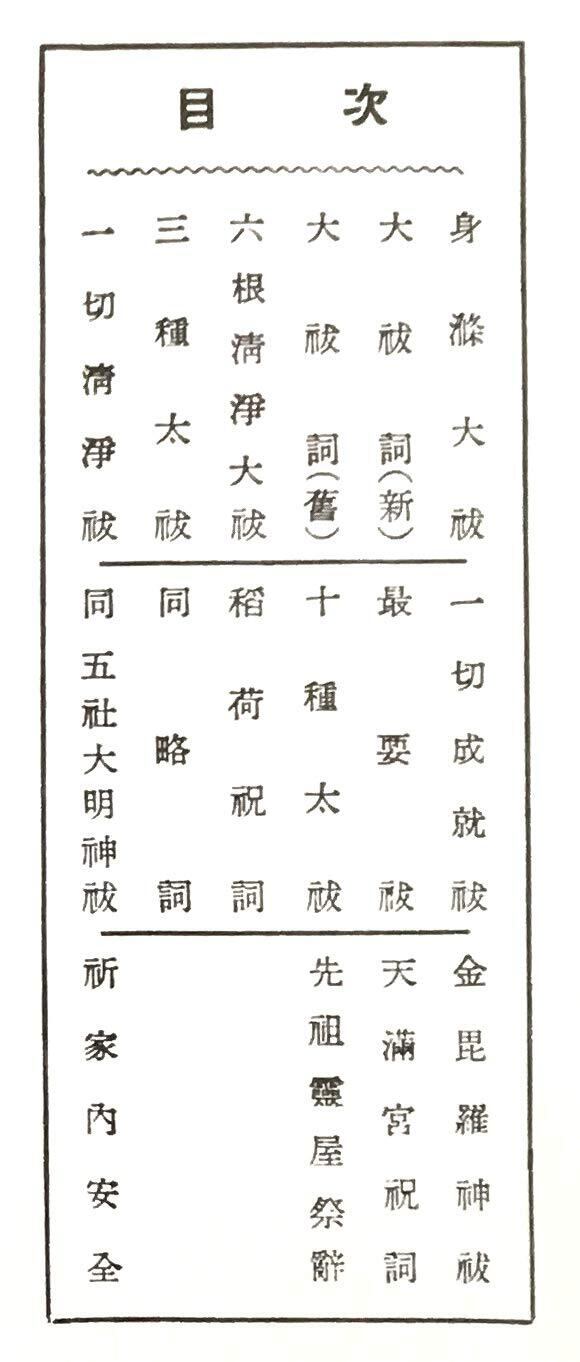 目次
身滌大祓
大祓詞(新)
大祓詞(舊)
六根淸淨大祓
三種太祓
一切淸淨祓
一切成就祓
最要祓
十種太祓
稻荷祝詞
同略詞
同五社大明神祓
金毘羅神祓
天滿宮祝詞
先祖靈屋祭辭
祈家內安全